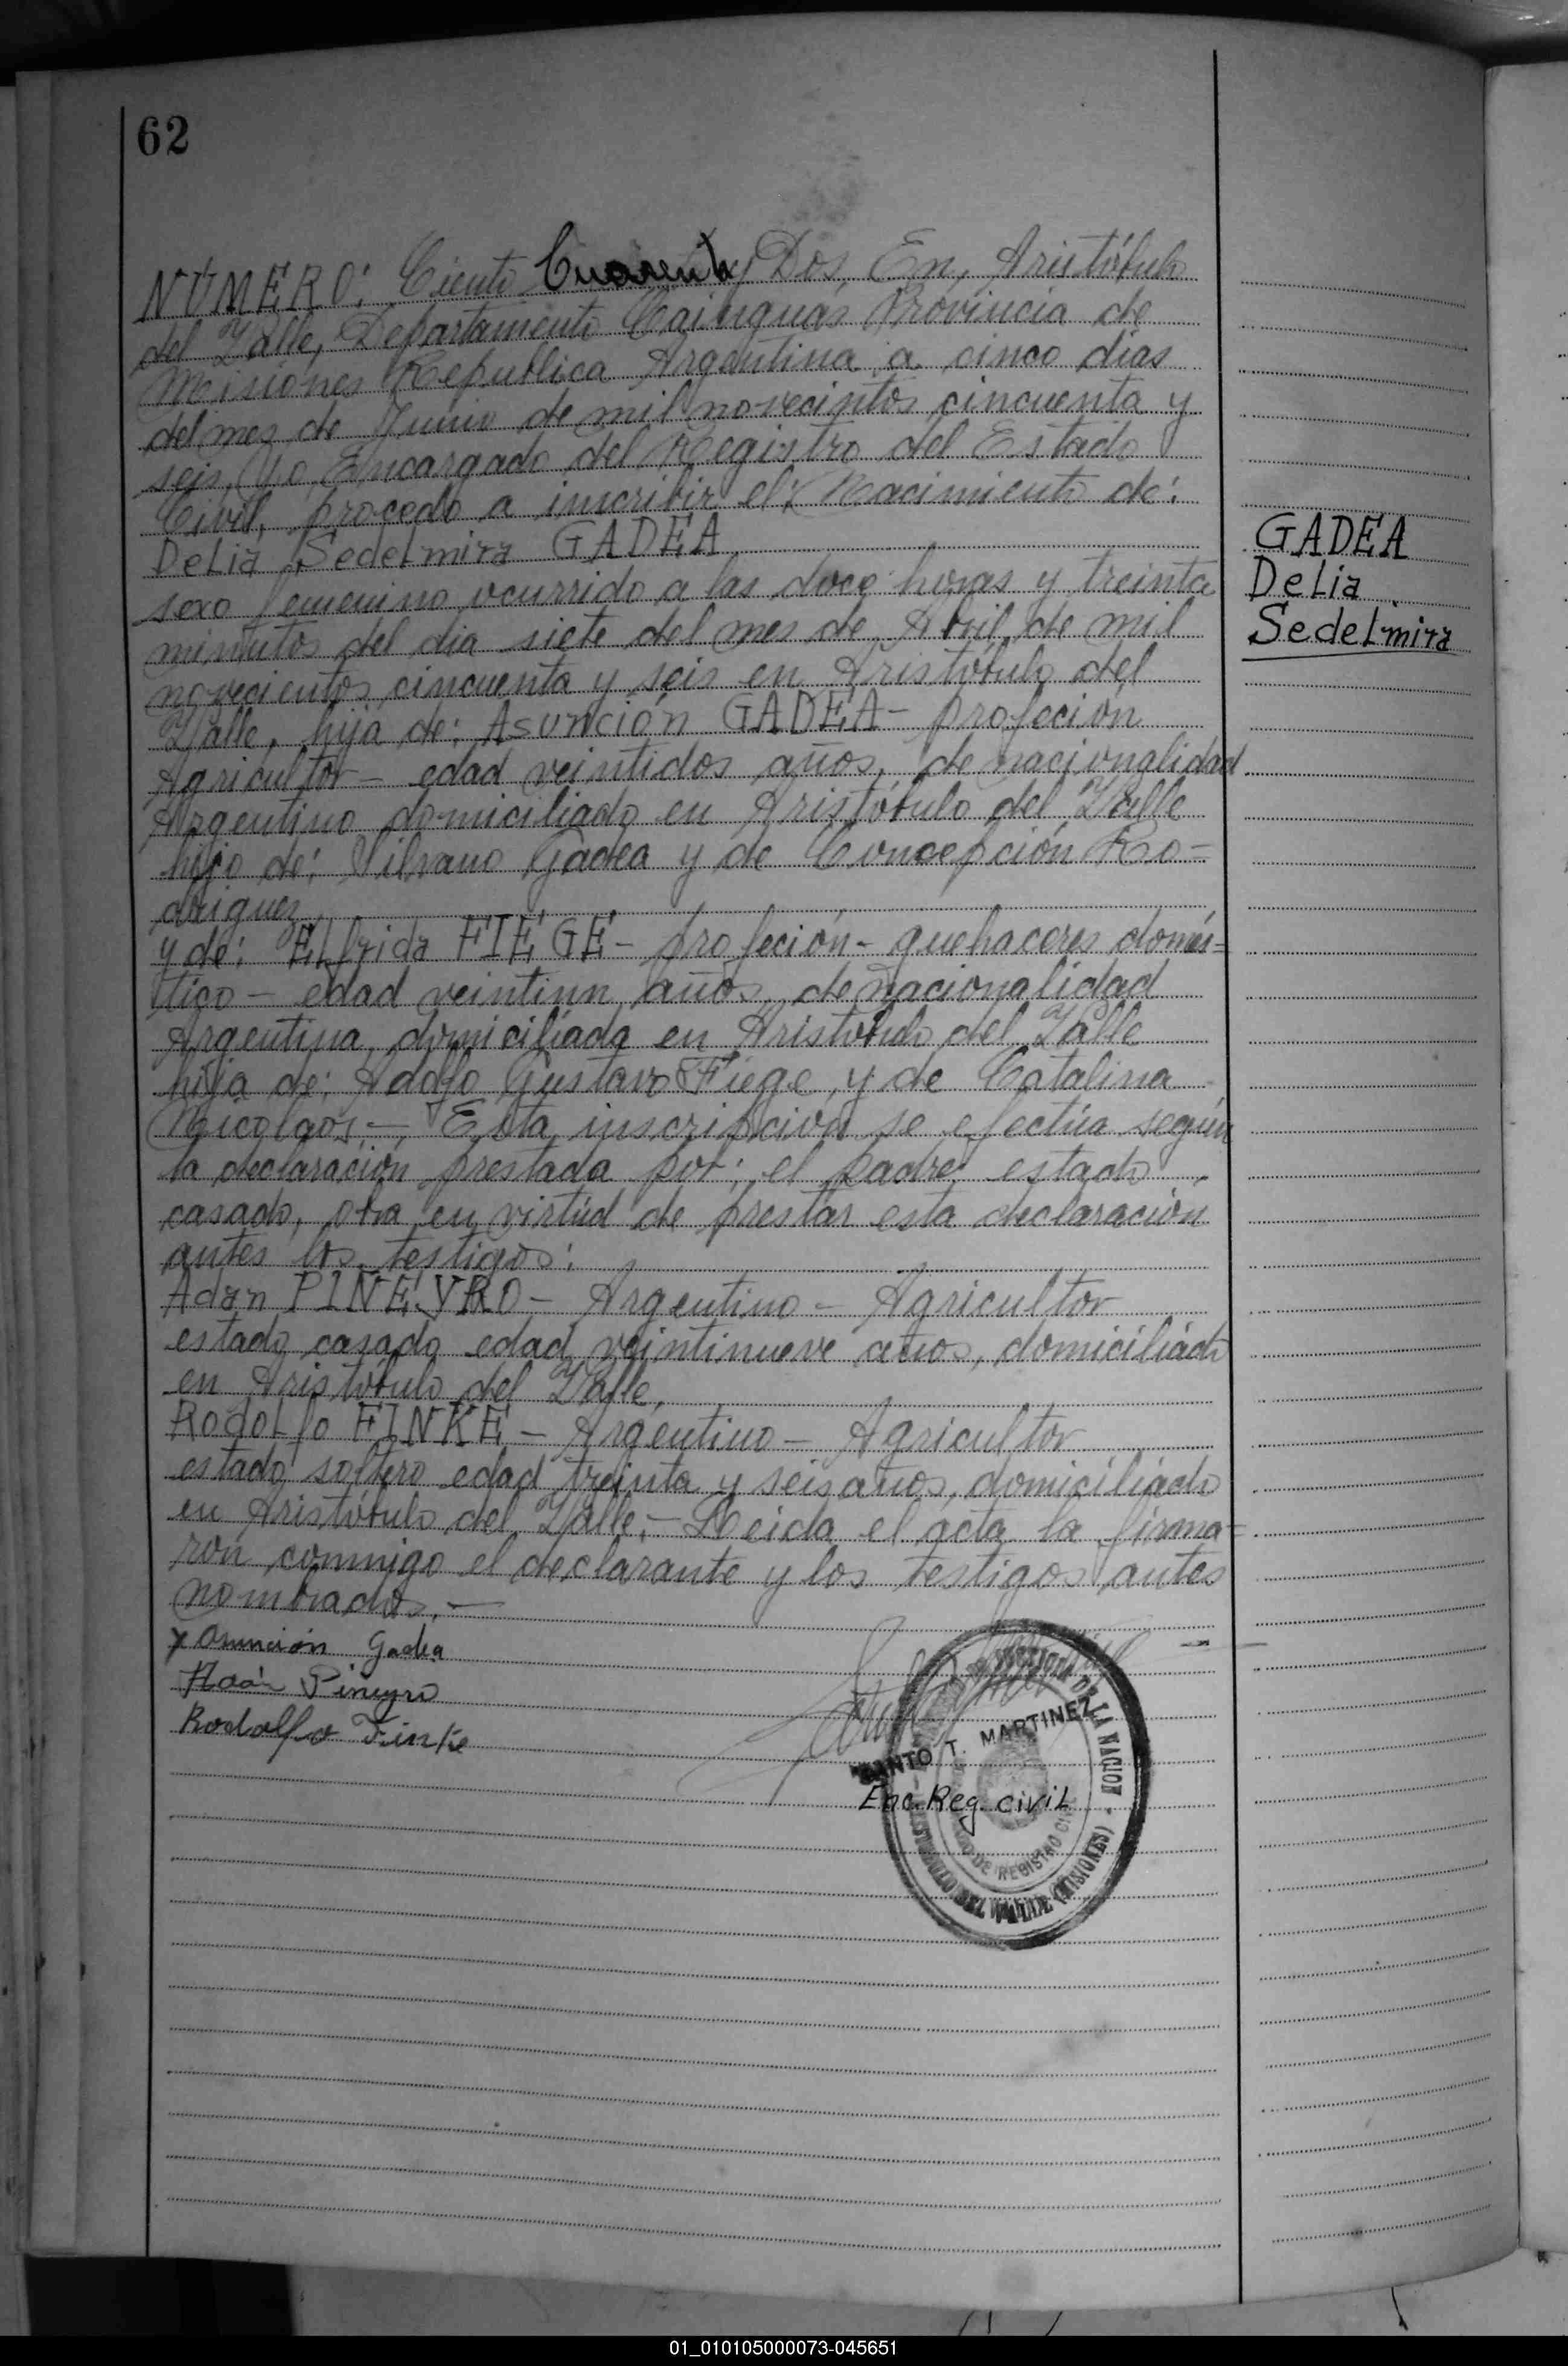 62
NÚMERO: Ciento Cuarenta y Dos, En, Aristóbulo
del Valle, Departamento Cainguás Provincia de
Misiónes República Argentina a cinco dias
del mes de Junio de mil novecintos cincuenta y
seis, Yo Encargado del Registro del Estado
Civil, procedo a inscribir el: Nacimiento de:
Delia Sedelmira GADEA
sexo femenino ocurrido a las doce horas y treinta
minutos del dia siete del mes de Abril de mil
novecientos cincuenta y seis en Aristóbulo del
Valle, hija de: Asunción GADEA- profeción
Agricultor- edad veintidos años, de nacionalidad
Argentino domiciliado en Aristóbulo del Valle
hijo de: Silvano Gadea y de Concepción Ro=
driguez
y de: Elfrida FIEGE- profeción- quehaceres domés=
tico- edad veintiun años, de nacionalidad
Argentina, domiciliada en Aristobulo del Valle
hija de: Adolfo Gustavo Fiege, y de Catalina
Nicolaos,- Esta inscripción se efectúa según
la declaración prestada por: el padre, estado
casado, obra en virtud de prestar esta declaración
antes los testigos:
Adan PINEYRO- Argentino- Agricultor
estado casado edad veintinueve años, domiciliado
en Aristóbulo del Valle,
Rodolfo FINKE- Argentino- Agricultor
estado soltero edad treinta y seis años, domiciliado
en Aristóbulo del Valle,- Leida el acta la firma=
ron conmigo el declarante y los testigos antes
nombrados.-
GADEA
Delia
Sedelmira
x Asunción Gadea
Adán Pineyro
Rodolfo Finke
SANTO T. MARTINEZ
Enc. Reg. civil
DE LA NACION
DE REGISTRO
DEL VALLE (MISIONES)
01_010105000073-045651